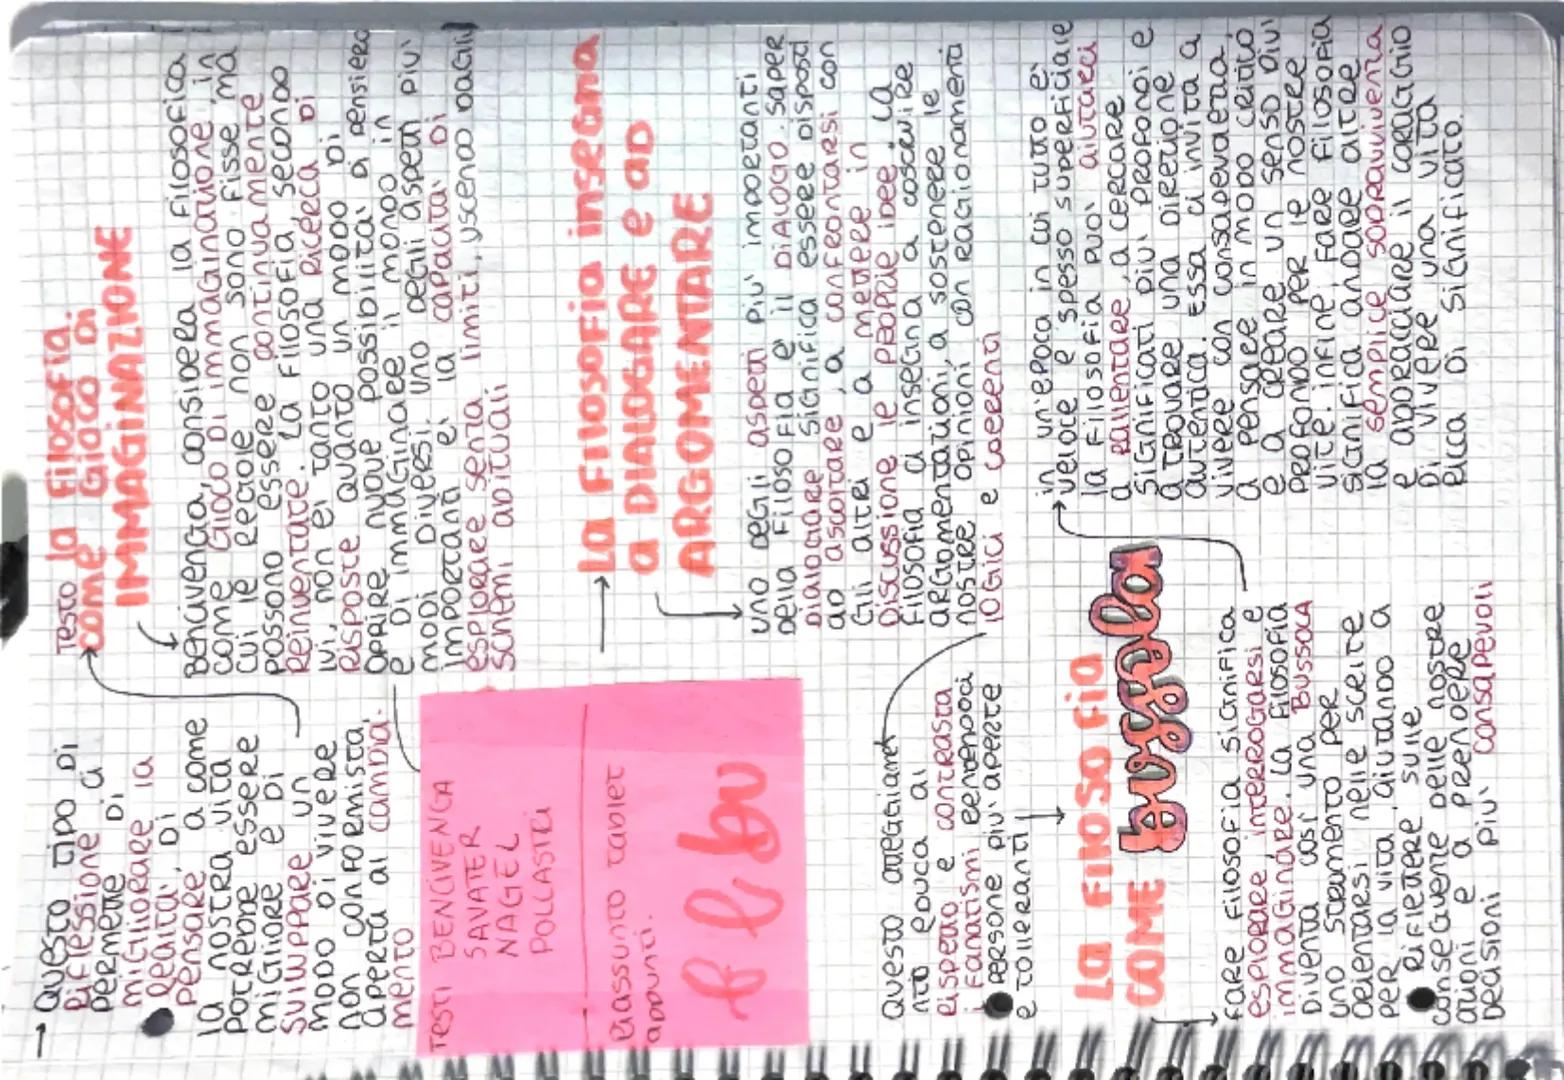 TESTO la Filosofia
come Gioco di
IMMAGINAZIONE
Bencivenga, considera la filosofica
come Gioco di immaginazione, in
cui le regole non sono fisse, ma
possono essere continuamente
reinventate. La filosofia, secondo
lui, non e' tanto una ricerca di
risposte quanto un modo di
aprire nuove possibilita' di pensiero
e di immaginare il mondo in
modi diversi. uno degli aspetti piu'
importanti e' la capacita' di
esplorare senza limiti, uscendo dagli
schemi abituali
→ Questo tipo di
riflessione ci
permette di
migliorare la
realta', di
pensare, a come
la nostra vita
potrebbe essere
migliore e di
sviluppare un
modo di vivere
non conformista,
aperta al cambia-
mento
TESTI BENCIVENGA
SAVATER
NAGEL
POLLASTRI
riassunto tablet
appunti.
→ La filosofia insegna
a DIALOGARE e ad
ARGOMENTARE
uno degli aspetti piu' importanti
della filosofia e' il DIALOGO. saper
dialogare significa essere disposti
ad ascoltare, a confrontarsi con
Gli altri e a mettere in
discussione le proprie idee. La
filosofia ci insegna a costruire
argomentazioni, a sostenere le
nostre opinioni con ragionamenti
logici e coerenti
questo atteggiame
nto educa al
rispetto e contrasta
i fanatismi rendendoci
persone piu' aperte
e tolleranti
La filosofia
COME Bussola
fare filosofia significa
esplorare, interrogarsi e
immaginare. La filosofia
diventa cosi' una BUSSOLA
uno strumento per
orientarsi nelle scelte
per la vita, aiutando a
riflettere sulle
conseguenze delle nostre
azioni e a prendere
decisioni piu' consapevoli
in un'epoca in cui tutto e'
veloce e spesso superficiale
la filosofia puo' aiutarci
a rallentare, a cercare
significati piu' profondi e
a trovare una direzione
autentica. Essa ci invita a
vivere con consapevolezza
a pensare in modo critico
e a creare un senso piu'
profondo per le nostre
vite. infine, fare filosofia
significa andare oltre
la semplice sopravvivenza
e abbracciare il coraggio
di vivere una vita
ricca di significato.